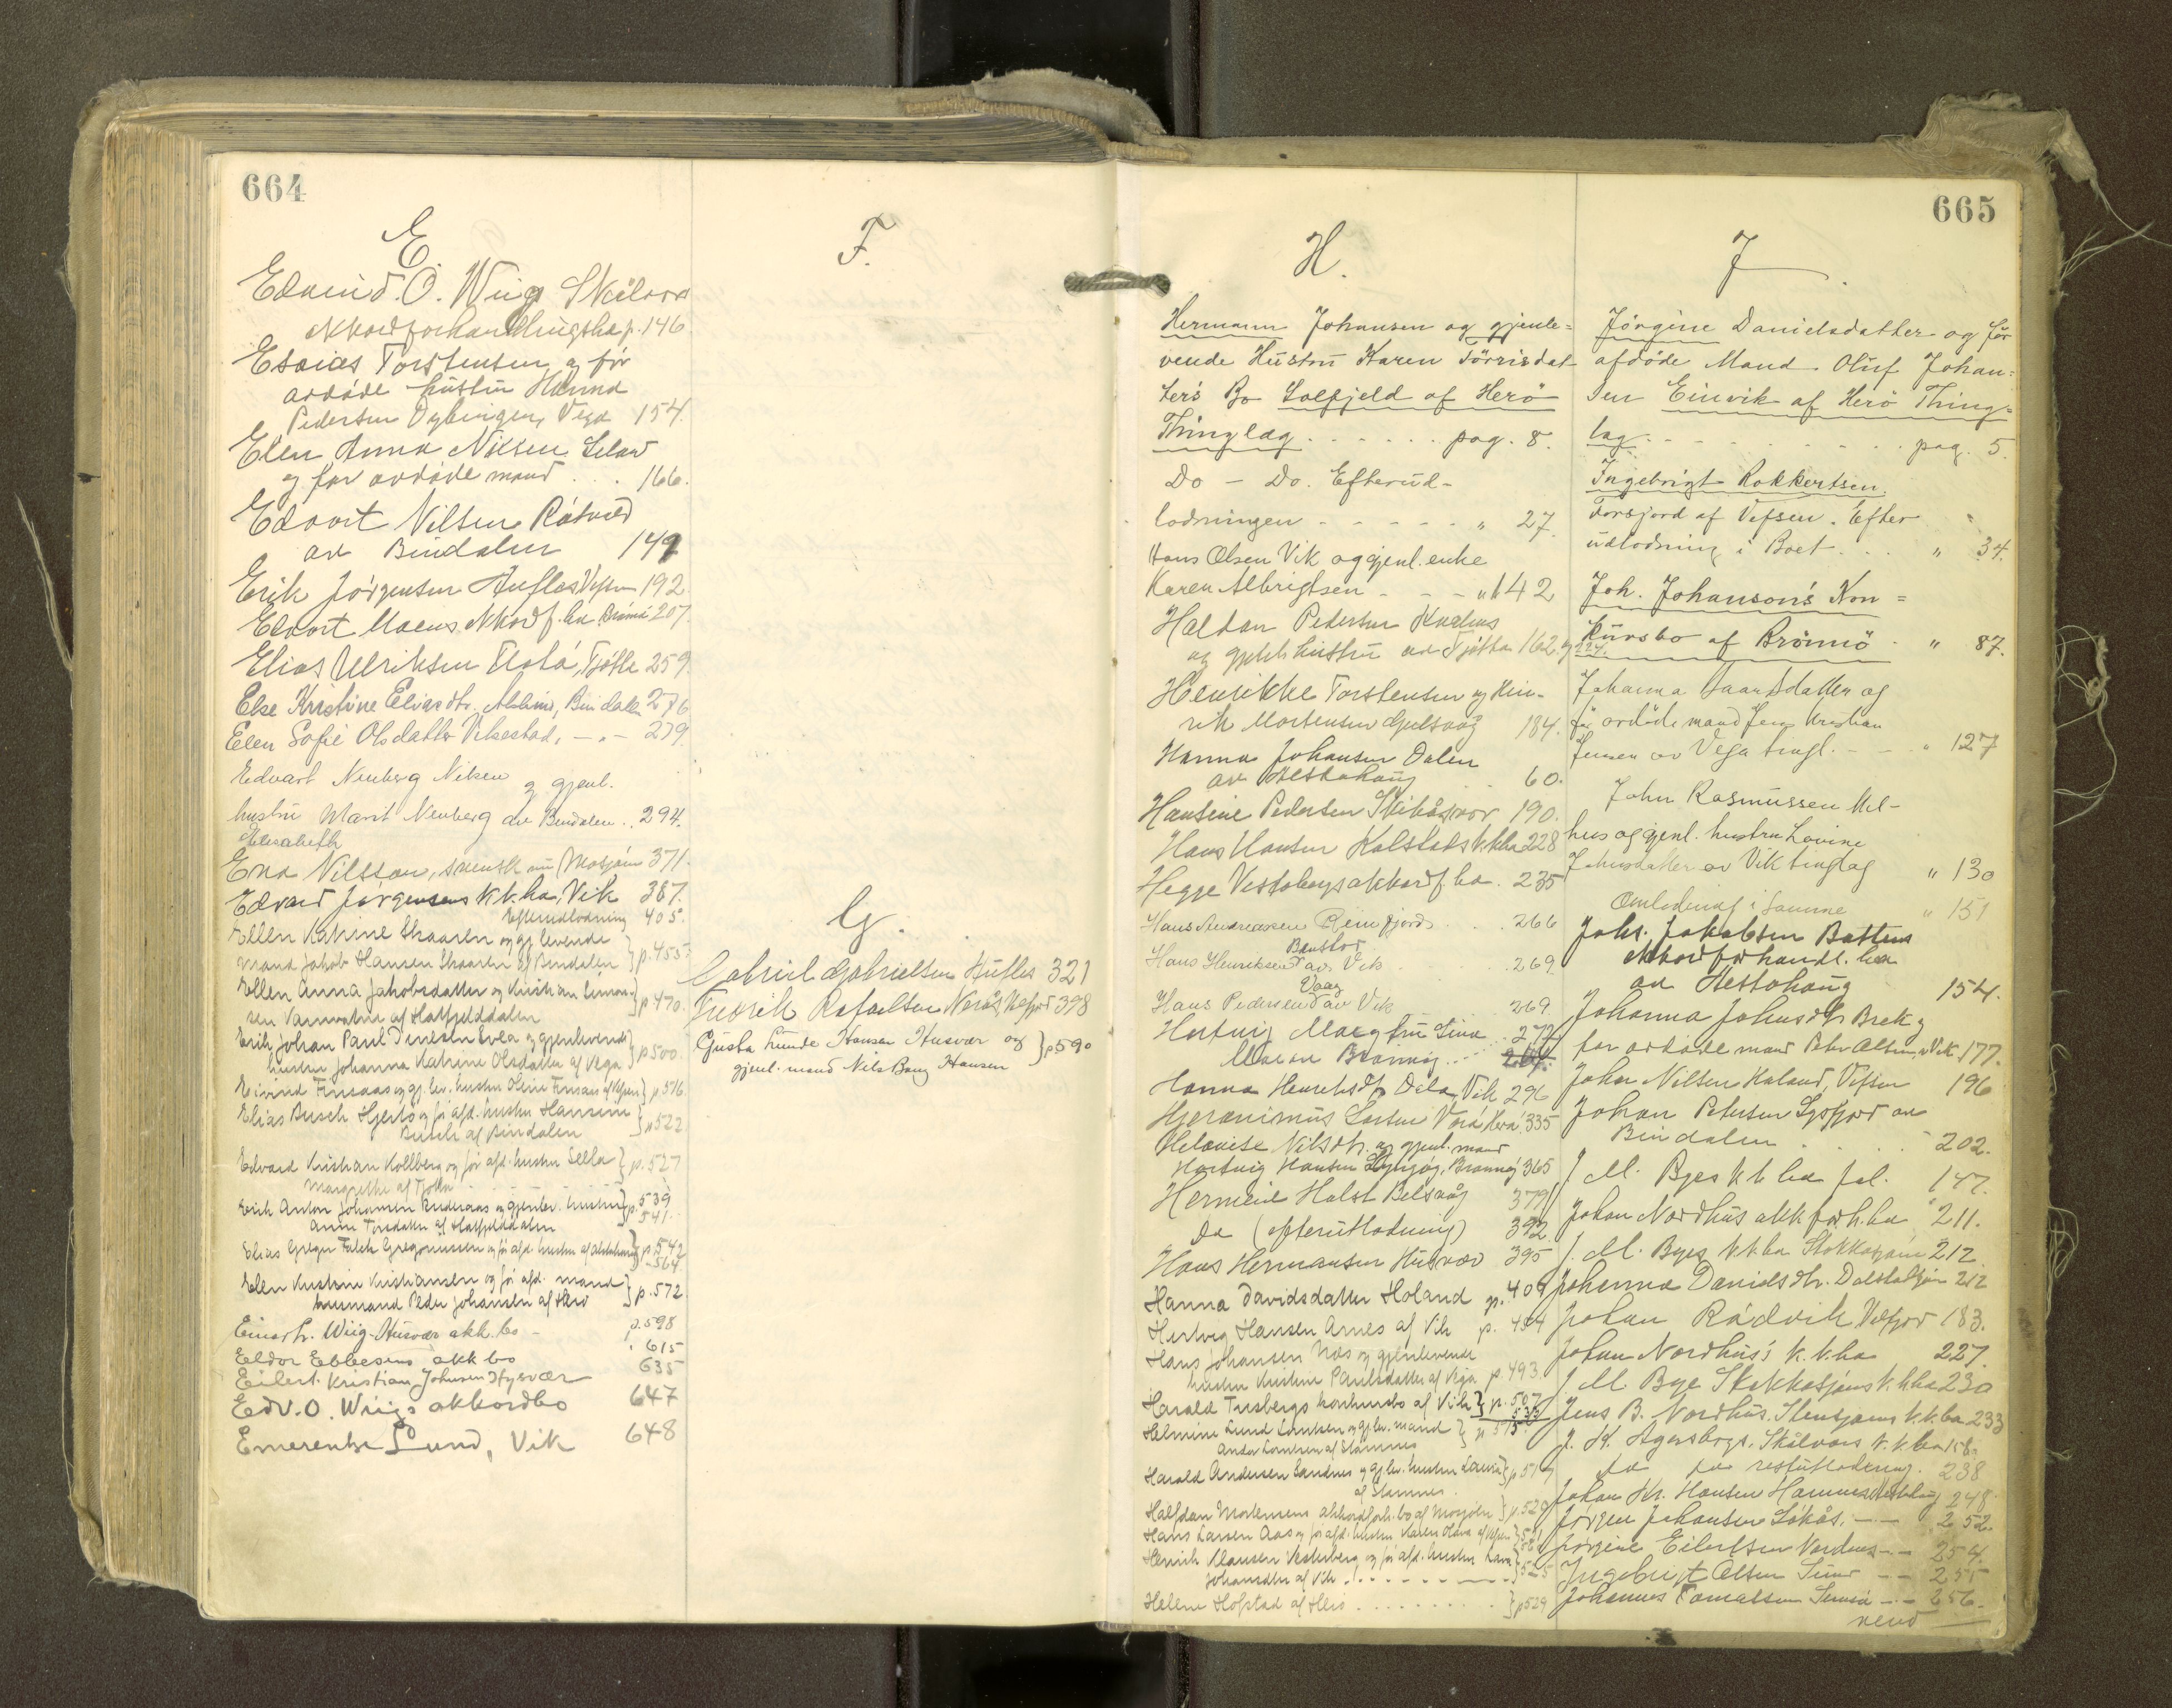 664
E.
Edvind. O. Wiig Skålvær
Akkordforhandlingsbo p. 146.
Esaias Torstensen og før
avdøde hustru Hanna
Pedersen Vega 154.
Elen Anna Nilsen
og før avdøde mand . . . 166.
Edvart Nilsen
av Bindalen 149
Erik Jørgensen Vefsn 192
Edvart akkordf. bo Brønnø 207.
Elias Ulriksen Flotå, Tjøtta 259.
Else Kristine Eliasdtr. Bindalen 276
Elen Sofie Olsdatter Viksestad, - " - 279.
Edvart Nenberg Nilsen og gjenl.
hustru Marit Nenberg av Bindalen . . 294.
Elisabeth
Nilsson, svensk nu Mosjøen 371.
Edvard Jørgensens k.k.bo, Vik 387.
Efterutlodning 405.
Ellen Katrine Skaaren og gj. levende
mand Jakob Hansen Skaaren af Bindalen } p. 455
Ellen Anna Jakobsdatter og Kristian Simon-
sen Varnvatn af Hatfjelddalen } p. 470.
Erik Johan Paul Evea og gjenlevende
hustru Johanna Katrine Olsdatter af Vega } p 500.
Eivind Finsaas og gj. lev. hustru Oline Finsaas af Vefsn } p 516.
Elias Busch Hjortø og før afd. hustru Hansine
Busch af Bindalen } " 522
Edvard Kristian Kollberg og før afd. hustru Sella
Margrethe af Tjøtta } p. 527
Erik Anton Johansen og gjenlev. hustru
Anne af Hatfjelddalen } p. 539 541.
Elias Greger Falch Gregoriussen og før afd. hustru af Alstahaug } p. 542 - 564
Ellen Kristine Kristiansen og før afd. mand
husmand Peder Johansen af Herø } p. 572
Einar Fr. Wiig - Husvær akk. bo - p. 598
Eldor Ebbesens akk bo " 615
Eilert Kristian Johnsen Hysvær 635
Edv. O. Wiigs akkordbo 647
Emerentse Lund, Vik 648
F.
G.
Gabriel Gabrielsen Hufles 321
Fredrik Rafaelsen Velfjord 398
Gusta Lunde Hansen Husvær og
gjenl. mand Nils Bang Hansen } p 590
665
H.
Hermann Johansen og gjenle=
vende Hustru Karen Tørrisdat
ters Bo Solfjeld af Herö
Thinglag . . . . . . pag. 8.
Do - Do. Efterud-
lodningen - - - - - " 27.
Hans Olsen Vik og gjenl. enke
Karen Albrigtsen - - - " 142
Haldan Pedersen
og gjenl. hustru av Tjøtta 162. og 174.
Henrikke Torstensen og Hen-
rik Mortensen 184.
Hanna Johansen Dalen
av Alstahaug 60.
Hansine Pedersen 190.
Hans Hansen Kolstads k.kbo 228
Hegge Vestobergs akkordf bo. 235
Hans Andreassen Reinfjord . . . 266
Benstor
Hans Henriksen av Vik . . . 269
Vaag
Hans Pedersen av Vik 269
Hertvig fru Lina . . 277
Brønnøy . . .
Hanna Henriksdtr Vik 296
Hjeronimus Larsen Herø 335
Helovise Nilsdtr. og gjenl. mand
Hartvig Hansen Brønnøy 365
Hermine Holst Belsvåg 379
Do (efterutlodning) 392
Hans Hermansen Husvær 395
Hanna Davidsdatter Holand p. 409
Hertvig Hansen Arnes af Vik p. 454
Hans Johansen Næs og gjenlevende
hustru Kristine Paulsdatter af Vega p. 493
Harald Tusbergs konkursbo af Vik } p. 507
Helmine Lund og gj.lev. mand
af Stamnes } p 515
Harald Andersen Sandnes og gj.lev. hustru Lavina
af Stamnes. } p 517
Halfdan Mortensens akkordforh. bo af Mosjøen } p. 520
Hans Larsen Aas og før afd. hustru Karen Olava af Vefsn } 521
Henrik Klausen Vesterberg og før afd. hustru
Johansdtr af Vik } 525
Helene Hofstad af Herø . . . . . . . } p 529
J.
Jörgine Danielsdatter og för
afdöde Mand Oluf Johan=
sen Einvik af Herö Thing=
lag . - - - - - - pag. 5.
Ingebrigt Rokkertsen
Forsjord af Vefsen. Efter
udlodning i Boet . . . " 34.
Joh. Johansons Kon=
kursbo af Brönnö - " 87.
Johanna Saarsdatter og
før avdøde mand Jens Kristian
Jensen av Vega tingl. - - " 127
John Rasmussen Mel-
hus og gjenl. hustru Lovine
Johnsdatter av Vik tinglag " 130
Omlodning i samme " 151
Johs. Jakobsen Battens
akkordforhandl. bo
av Alstahaug 154.
Johanna Johnsdtr Brek og
før avdøde mand Peter Olsen, Vik 177.
Johan Nilsen Kaland, Vefsn 196
Johan Petersen av
Bindalen . . . 202.
J. M. Byes k.k. bo fol. 147.
Johan Nordhus akk forh. bo " 211.
J. M. Byes k.k. bo Stokkasjøen 212
Johanna Danielsdtr. 212
Johan Rådvik Velfjord 183.
Johan Nordhus's k.k.bo 227.
J. M. Bye Stokkasjøens k.k.bo 230
Jens B. Nordhus. k.k.bo 233
J. H. Agersborgs, Skålvær k.k.bo 158.
do do restutlodning. 238
Johan Kr. Hansen 248
Jørgen Johansen Såkås. - - 252.
Jørgine Eilertsen - - 254.
Ingebrigt Olsen - - 255
Johannes - - 256.
vend